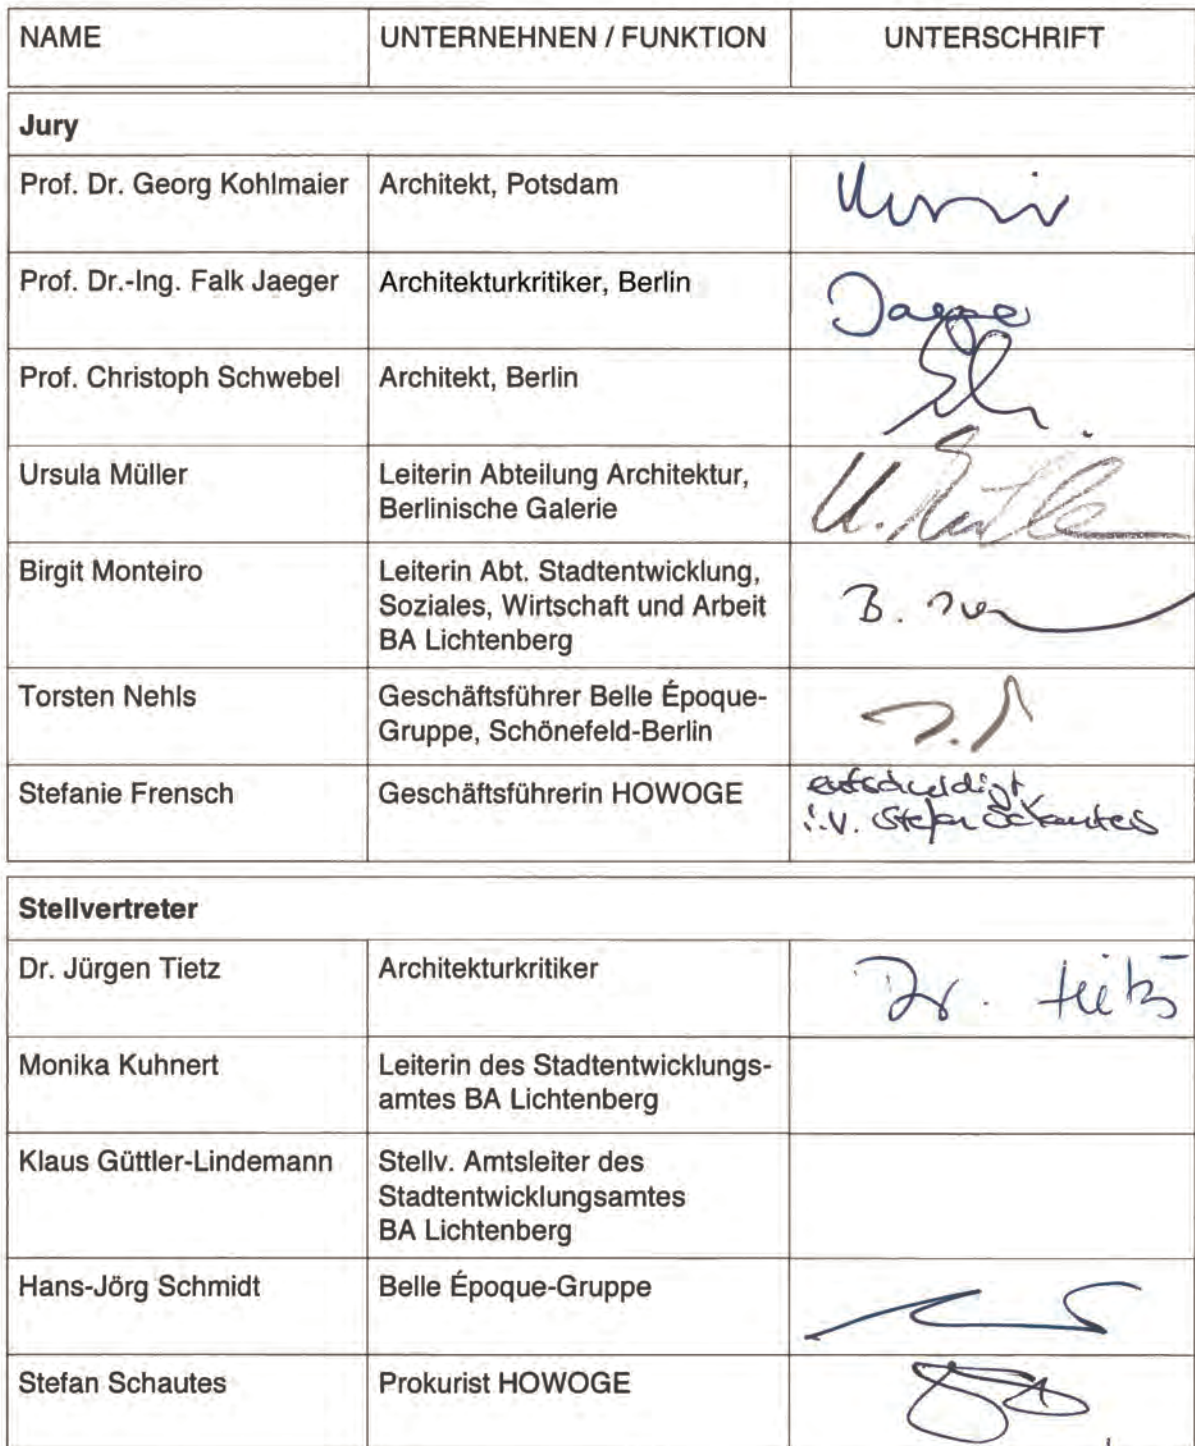 NAME UNTERNEHNEN / FUNKTION UNTERSCHRIFT
Jury
Prof. Dr. Georg Kohlmaier Architekt, Potsdam
Prof. Dr.-Ing. Falk Jaeger Architekturkritiker, Berlin
Jaeger
Prof. Christoph Schwebel Architekt, Berlin
Ursula Müller Leiterin Abteilung Architektur,
Berlinische Galerie
U. Müller
Birgit Monteiro Leiterin Abt. Stadtentwicklung,
Soziales, Wirtschaft und Arbeit
B.
BA Lichtenberg
Torsten Nehls Geschäftsführer Belle Époque-
Gruppe, Schönefeld-Berlin
Stefanie Frensch Geschäftsführerin HOWOGE entschuldigt
i.V. Stefan Schautes
Stellvertreter
Dr. Jürgen Tietz Architekturkritiker Dr. Tietz
Monika Kuhnert Leiterin des Stadtentwicklungs-
amtes BA Lichtenberg
Klaus Güttler-Lindemann Stellv. Amtsleiter des
Stadtentwicklungsamtes
BA Lichtenberg
Hans-Jörg Schmidt Belle Époque-Gruppe
Stefan Schautes Prokurist HOWOGE